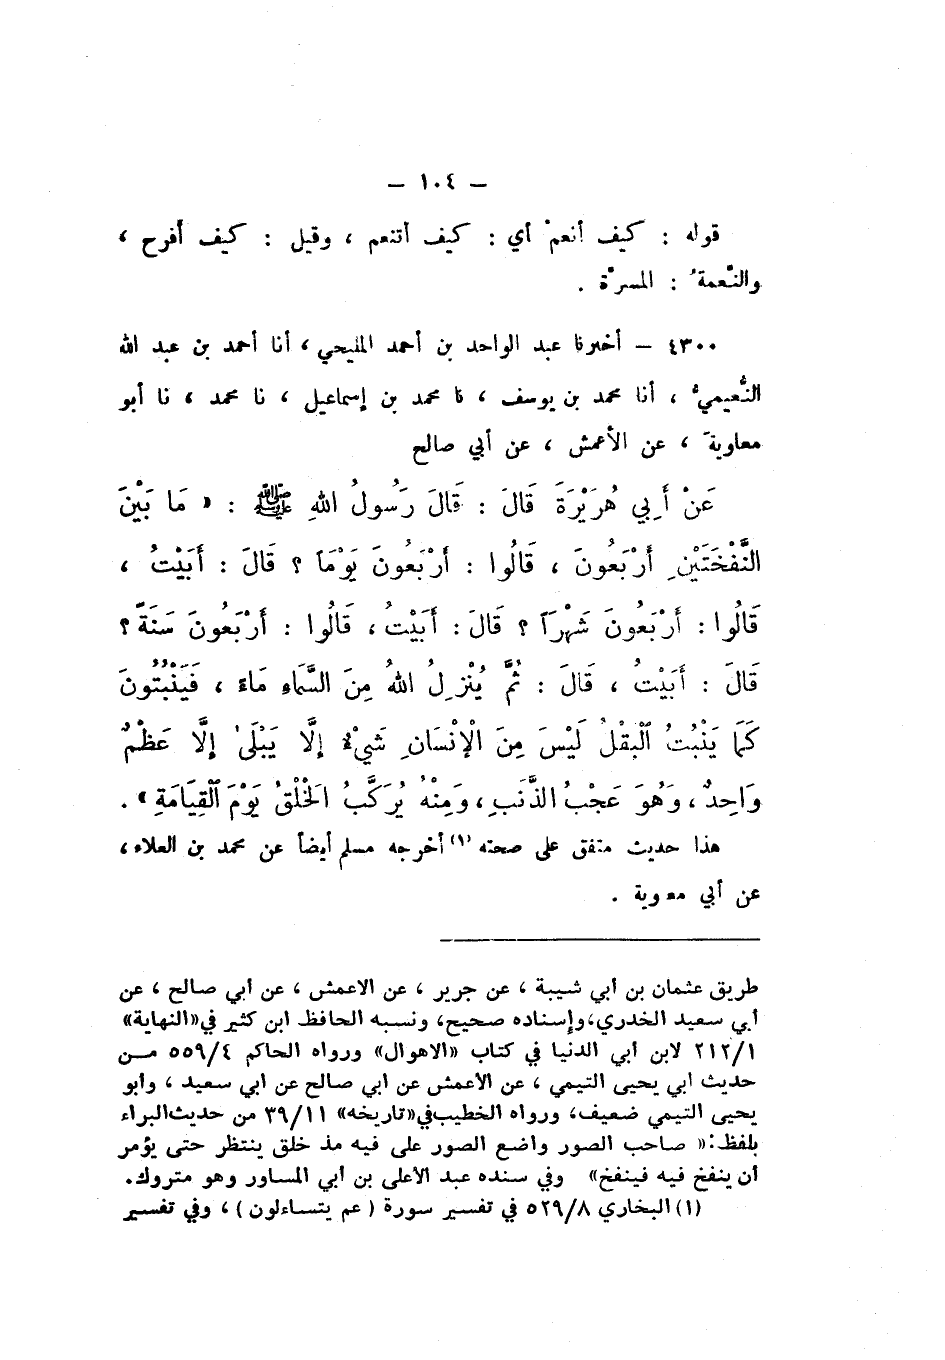 — ١٠٤ —
قوله : كيف أنعمْ أي : كيف أتنعم ، وقيل : كيف أفرح ،
والنَّعمةُ : المسرَّة .
٤٣٠٠ – أخبرنا عبد الواحد بن أحمد المليحي ، أنا أحمد بن عبد الله
النُّعيميُّ ، أنا محمد بن يوسف ، نا محمد بن إسماعيل ، نا محمد ، نا أبو
معاويةَ ، عن الأعمش ، عن أبي صالح
عَنْ أَبِي هُرَيْرَةَ قَالَ : قَالَ رَسُولُ اللهِ ﷺ : « مَا بَيْنَ
النَّفْخَتَيْنِ أَرْبَعُونَ ، قَالُوا : أَرْبَعُونَ يَوْمَاً ؟ قَالَ : أَبَيْتُ ،
قَالُوا : أَرْبَعُونَ شَهْرَاً ؟ قَالَ : أَبَيْتُ ، قَالُوا : أَرْبَعُونَ سَنَةً ؟
قَالَ : أَبَيْتُ ، قَالَ : ثُمَّ يُنْزِلُ اللهُ مِنَ السَّمَاءِ مَاءً ، فَيَنْبُتُونَ
كَمَا يَنْبُتُ الْبَقْلُ لَيْسَ مِنَ الْإِنْسَانِ شَيْءٌ إِلَّا يَبْلَىٰ إِلَّا عَظْمٌ
وَاحِدٌ ، وَهُوَ عَجْبُ الذَّنَبِ ، وَمِنْهُ يُرَكَّبُ الخَلْقُ يَوْمَ الْقِيَامَةِ » .
هذا حديث متفق على صحته (١) أخرجه مسلم أيضاً عن محمد بن العلاء ،
عن أبي معوية .
طريق عثمان بن أبي شيبة ، عن جرير ، عن الاعمش ، عن أبي صالح ، عن
أبي سعيد الخدري ، وإسناده صحيح ، ونسبه الحافظ ابن كثير في «النهاية»
٢١٢/١ لابن أبي الدنيا في كتاب «الاهوال» ورواه الحاكم ٥٥٩/٤ من
حديث ابي يحيى التيمي ، عن الاعمش عن ابي صالح عن ابي سعيد ، وأبو
يحيى التيمي ضعيف ، ورواه الخطيب في «تاريخه» ٣٩/١١ من حديث البراء
بلفظ : « صاحب الصور واضع الصور على فيه مذ خلق ينتظر حتى يؤمر
أن ينفخ فيه فينفخ» وفي سنده عبد الأعلى بن أبي المساور وهو متروك.
(١) البخاري ٥٢٩/٨ في تفسير سورة ( عم يتساءلون ) ، وفي تفسير